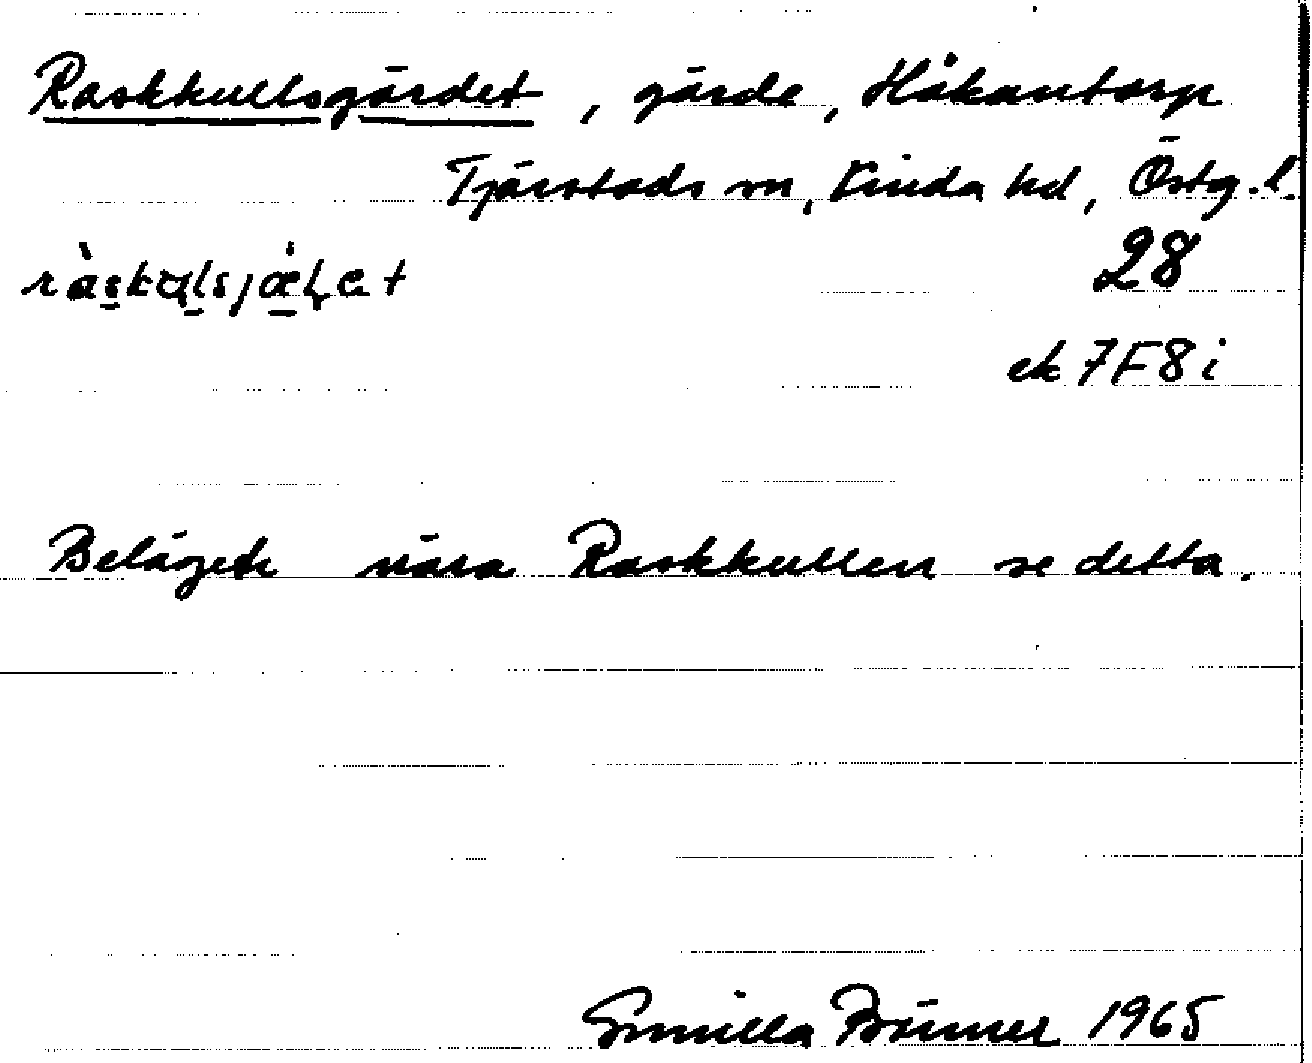 Raskkullsgärdet, gärde, Håkantorp
Tjärstads sn, Kinda hd, Östg.l.
28
ek 7F8i
Beläget nära Raskkullen se detta.
Gunilla 1965